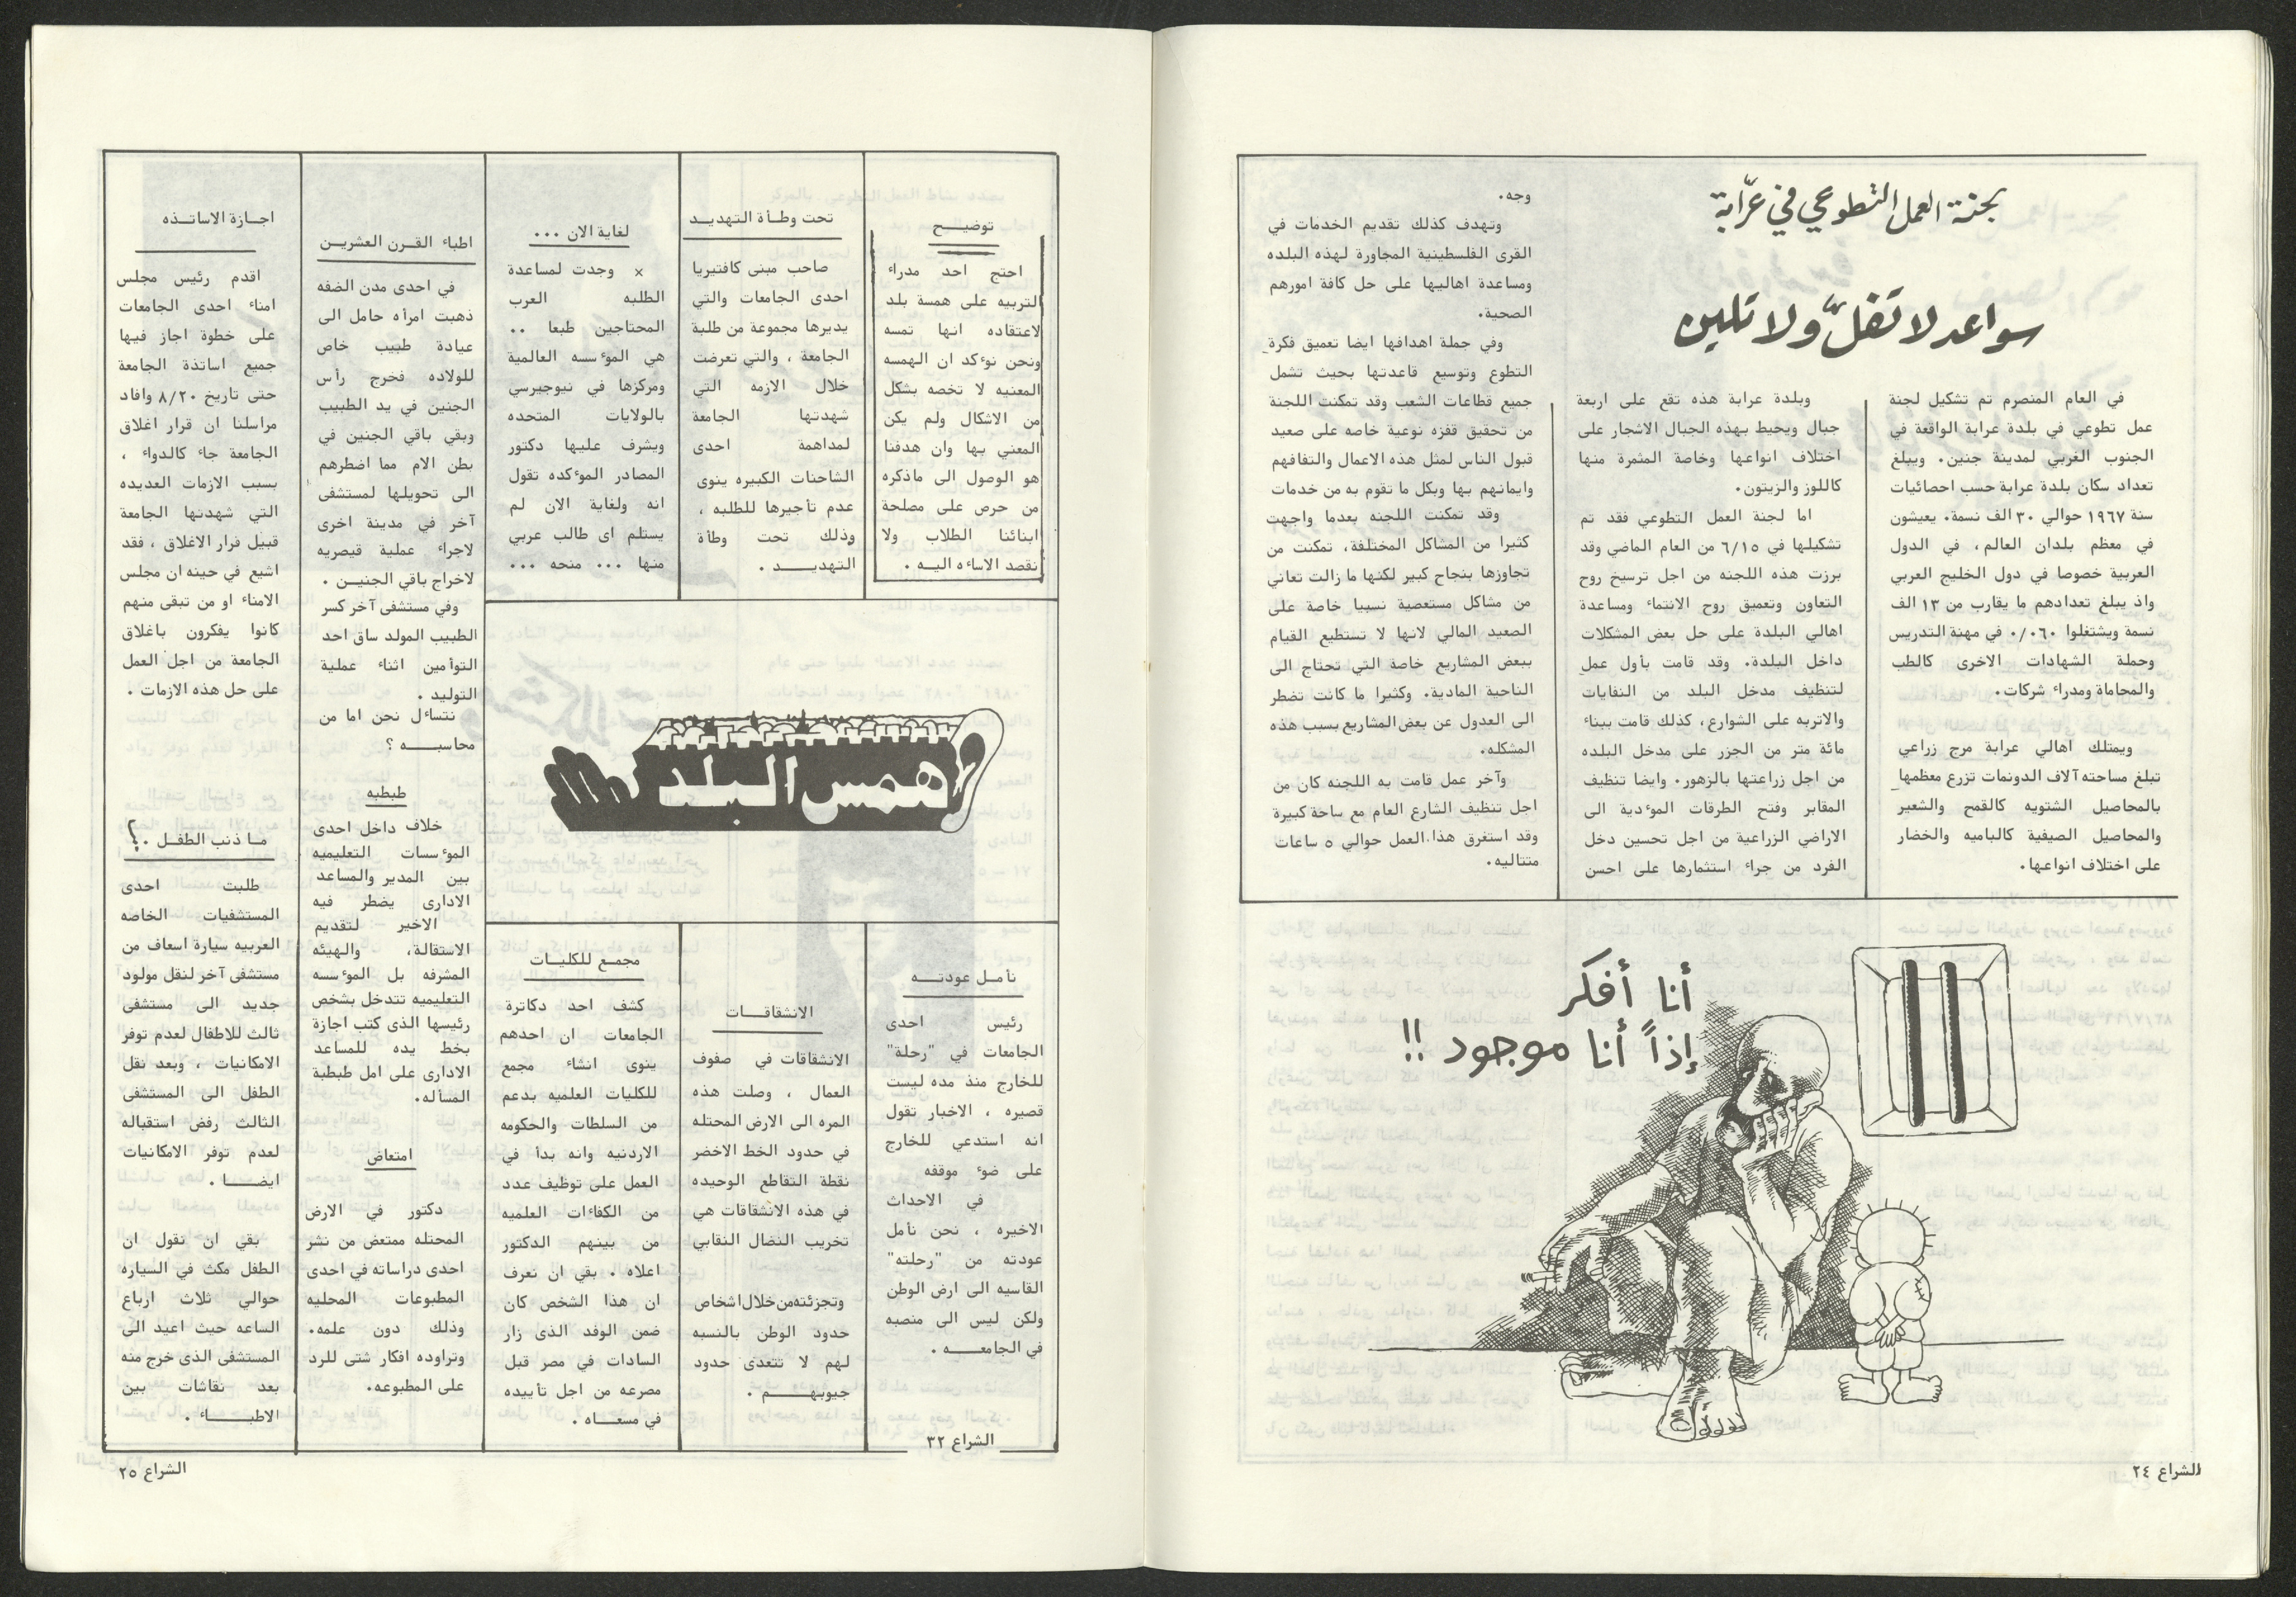 لجنة العمل التطوعي في عرّابة
سواعد لا تفلّ ولا تلين
في العام المنصرم تم تشكيل لجنة
عمل تطوعي في بلدة عرابة الواقعة في
الجنوب الغربي لمدينة جنين. ويبلغ
تعداد سكان بلدة عرابة حسب احصائيات
سنة ١٩٦٧ حوالي ٣٠ الف نسمة. يعيشون
في معظم بلدان العالم، في الدول
العربية خصوصا في دول الخليج العربي
واذ يبلغ تعدادهم ما يقارب من ١٣ الف
نسمة ويشتغلوا ٠/٠٦٠ في مهنة التدريس
وحملة الشهادات الاخرى كالطب
والمحاماة ومدراء شركات.
ويمتلك اهالي عرابة مرج زراعي
تبلغ مساحته آلاف الدونمات تزرع معظمها
بالمحاصيل الشتويه كالقمح والشعير
والمحاصيل الصيفية كالباميه والخضار
على اختلاف انواعها.
وبلدة عرابة هذه تقع على اربعة
جبال ويحيط بهذه الجبال الاشجار على
اختلاف انواعها وخاصة المثمرة منها
كاللوز والزيتون.
اما لجنة العمل التطوعي فقد تم
تشكيلها في ٦/١٥ من العام الماضي وقد
برزت هذه اللجنه من اجل ترسيخ روح
التعاون وتعميق روح الانتماء ومساعدة
اهالي البلدة على حل بعض المشكلات
داخل البلدة. وقد قامت بأول عمل
لتنظيف مدخل البلد من النفايات
والاتربه على الشوارع، كذلك قامت ببناء
مائة متر من الجزر على مدخل البلده
من اجل زراعتها بالزهور. وايضا تنظيف
المقابر وفتح الطرقات الموءدية الى
الاراضي الزراعية من اجل تحسين دخل
الفرد من جراء استثمارها على احسن
وجه.
وتهدف كذلك تقديم الخدمات في
القرى الفلسطينية المجاورة لهذه البلده
ومساعدة اهاليها على حل كافة امورهم
الصحية.
وفي جملة اهدافها ايضا تعميق فكرة
التطوع وتوسيع قاعدتها بحيث تشمل
جميع قطاعات الشعب وقد تمكنت اللجنة
من تحقيق قفزه نوعية خاصه على صعيد
قبول الناس لمثل هذه الاعمال والتفافهم
وايمانهم بها وبكل ما تقوم به من خدمات
وقد تمكنت اللجنه بعدما واجهت
كثيرا من المشاكل المختلفة، تمكنت من
تجاوزها بنجاح كبير لكنها ما زالت تعاني
من مشاكل مستعصية نسبيا خاصة على
الصعيد المالي لانها لا تستطيع القيام
ببعض المشاريع خاصة التي تحتاج الى
الناحية المادية. وكثيرا ما كانت تضطر
الى العدول عن بعض المشاريع بسبب هذه
المشكله.
وآخر عمل قامت به اللجنه كان من
اجل تنظيف الشارع العام مع ساحة كبيرة
وقد استغرق هذا العمل حوالي ٥ ساعات
متتاليه.
أنا أفكر
إذاً أنا موجود !!
الشراع ٢٤
توضيــح
احتج احد مدراء
التربيه على همسة بلد
لاعتقاده انها تمسه
ونحن نوءكد ان الهمسه
المعنيه لا تخصه بشكل
من الاشكال ولم يكن
المعني بها وان هدفنا
هو الوصول الى ماذكره
من حرص على مصلحة
ابنائنا الطلاب ولا
نقصد الاساءه اليـه .
تحت وطـأة التهديـد
صاحب مبنى كافتيريا
احدى الجامعات والتي
يديرها مجموعة من طلبة
الجامعة ، والتي تعرضت
خلال الازمه التي
شهدتها الجامعة
لمداهمة احدى
الشاحنات الكبيره ينوى
عدم تأجيرها للطلبه ،
وذلك تحت وطأة
التهديــــد .
لغاية الان ...
× وجدت لمساعدة
الطلبه العرب
المحتاجين طبعا ..
هي الموءسسه العالمية
ومركزها في نيوجيرسي
بالولايات المتحده
ويشرف عليها دكتور
المصادر الموءكده تقول
انه ولغاية الان لم
يستلم اى طالب عربي
منها ... منحه ...
همس البلد
نأمـل عودتـــه
رئيس احدى
الجامعات في "رحلة"
للخارج منذ مده ليست
قصيره ، الاخبار تقول
انه استدعي للخارج
على ضوء موقفه
في الاحداث
الاخيره ، نحن نأمل
عودته من "رحلته"
القاسيه الى ارض الوطن
ولكن ليس الى منصبه
في الجامعــــه .
الشراع ٣٢
الانشقاقـــات
الانشقاقات في صفوف
العمال ، وصلت هذه
المره الى الارض المحتله
في حدود الخط الاخضر
نقطة التقاطع الوحيده
في هذه الانشقاقات هي
تخريب النضال النقابي
وتجزئته من خلال اشخاص
حدود الوطن بالنسبه
لهم لا تتعدى حدود
جيوبهـــــم .
مجمـع للكليـات
كشف احد دكاترة
الجامعات ان احدهم
ينوى انشاء مجمع
للكليات العلميه بدعم
من السلطات والحكومه
الاردنيه وانه بدأ في
العمل على توظيف عدد
من الكفاءات العلميه
من بينهم الدكتور
اعلاه . بقي ان نعرف
ان هذا الشخص كان
ضمن الوفد الذى زار
السادات في مصر قبل
مصرعه من اجل تأييده
في مسعــاه .
اطباء القـرن العشريـن
في احدى مدن الضفه
ذهبت امرأه حامل الى
عيادة طبيب خاص
للولاده فخرج رأس
الجنين في يد الطبيب
وبقي باقي الجنين في
بطن الام مما اضطرهم
الى تحويلها لمستشفى
آخر في مدينة اخرى
لاجراء عملية قيصريه
لاخراج باقي الجنيـن .
وفي مستشفى آخر كسر
الطبيب المولد ساق احد
التوأمين اثناء عملية
التوليد .
نتساءل نحن اما من
محاسبـــــه ؟
طبطبه
خلاف داخل احدى
الموءسسات التعليميه
بين المدير والمساعد
الادارى يضطر فيه
الاخير لتقديم
الاستقالة، والهيئه
المشرفه بل الموءسسه
التعليميه تتدخل بشخص
رئيسها الذى كتب اجازة
بخط يده للمساعد
الادارى على امل طبطبة
المسأله.
امتعاض
دكتور في الارض
المحتله ممتعض من نشر
احدى دراساته في احدى
المطبوعات المحليه
وذلك دون علمه.
وتراوده افكار شتى للرد
على المطبوعه.
اجـازة الاساتــذه
اقدم رئيس مجلس
امناء احدى الجامعات
على خطوة اجاز فيها
جميع اساتذة الجامعة
حتى تاريخ ٨/٢٠ وافاد
مراسلنا ان قرار اغلاق
الجامعة جاء كالدواء ،
بسبب الازمات العديده
التي شهدتها الجامعة
قبيل قرار الاغلاق ، فقد
اشيع في حينه ان مجلس
الامناء او من تبقى منهم
كانوا يفكرون باغلاق
الجامعة من اجل العمل
على حل هذه الازمات .
مـا ذنب الطفـل .؟
طلبت احدى
المستشفيات الخاصه
العربيه سيارة اسعاف من
مستشفى آخر لنقل مولود
جديد الى مستشفى
ثالث للاطفال لعدم توفر
الامكانيات ، وبعد نقل
الطفل الى المستشفى
الثالث رفض استقباله
لعدم توفر الامكانيات
ايضـــا .
بقي ان نقول ان
الطفل مكث في السياره
حوالي ثلاث ارباع
الساعه حيث اعيد الى
المستشفى الذى خرج منه
بعد نقاشات بين
الاطبـــاء .
الشراع ٢٥